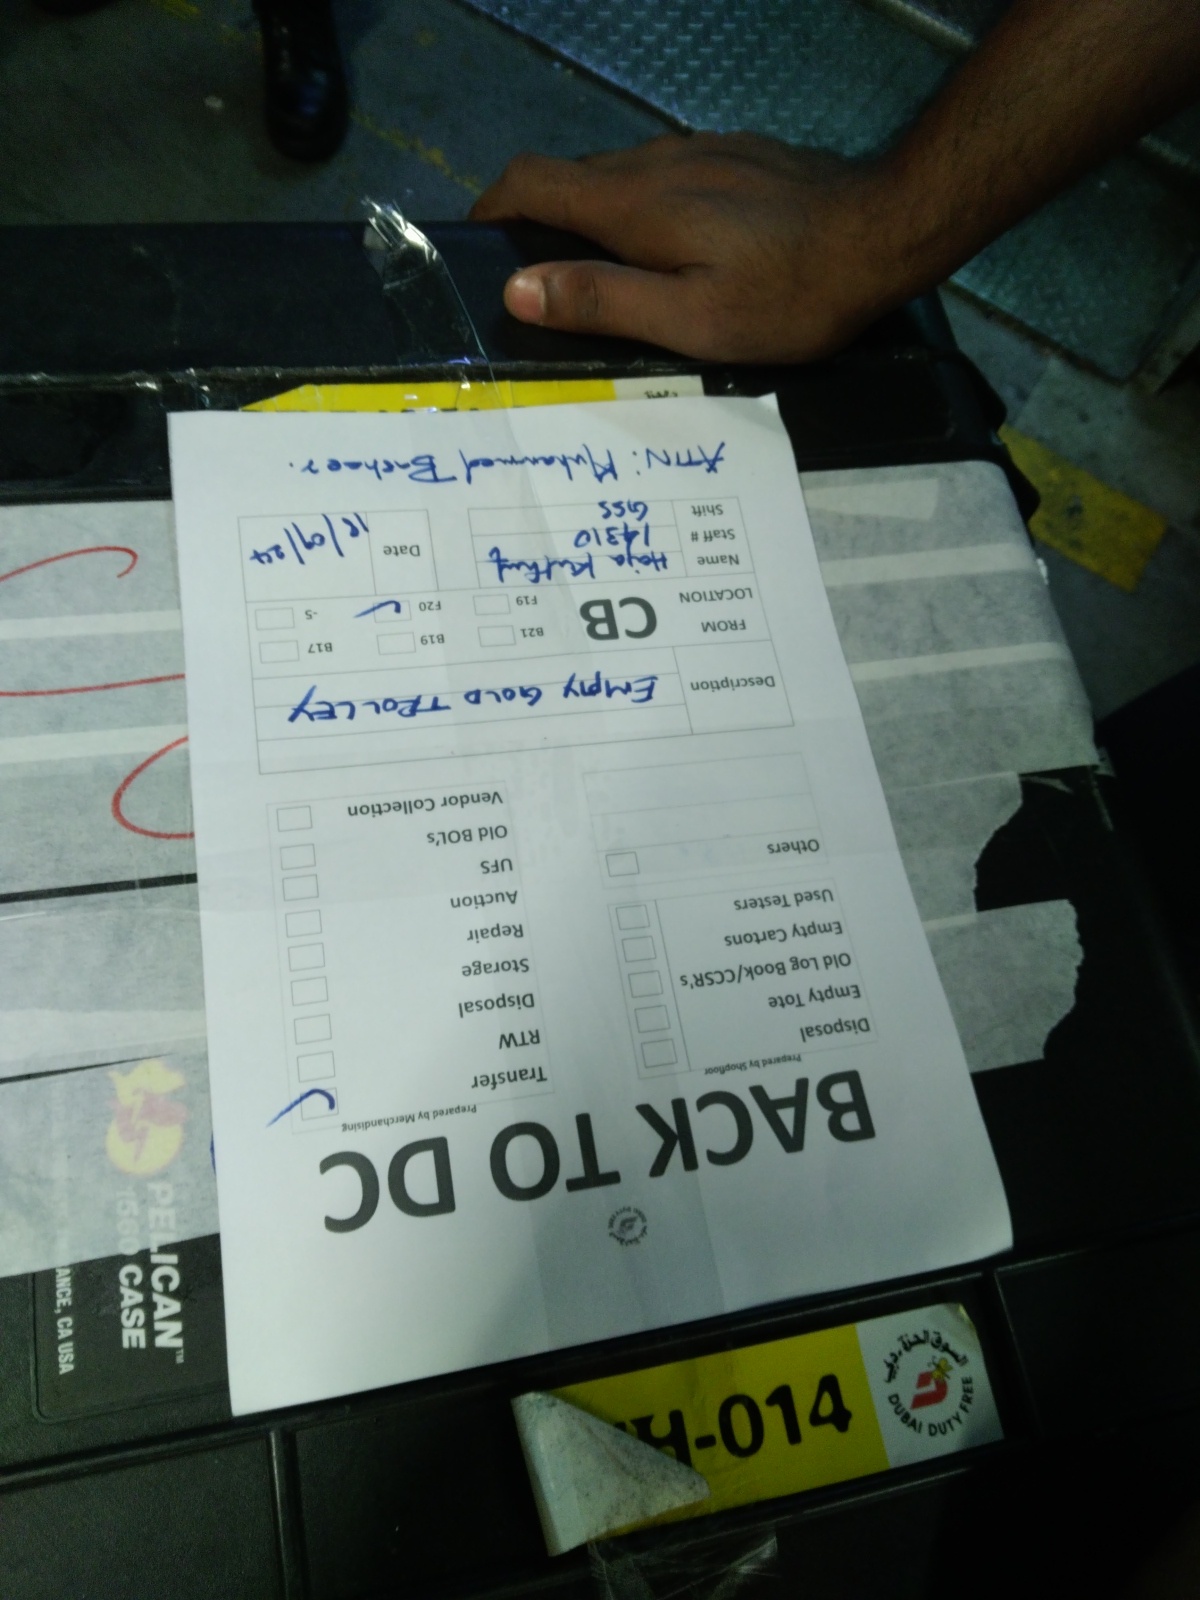 BACK TO DC
Prepared by Shopfloor
Disposal
Empty Tote
Old Log Book/CCSR's
Empty Cartons
Used Testers
Others
Prepared by Merchandising
Transfer
RTW
Disposal
Storage
Repair
Auction
UFS
Old BOL's
Vendor Collection
Description
EMPTY GOLD TROLLEY
FROM
LOCATION
CB
B21 B19 B17
F19 F20 -S
Name Haja
Staff # 14310
Shift GSS
Date
ATTN: Muhammed
PELICAN™
CASE
ANCE, CA USA
H-014
السوق الحرة - دبي
DUBAI DUTY FREE